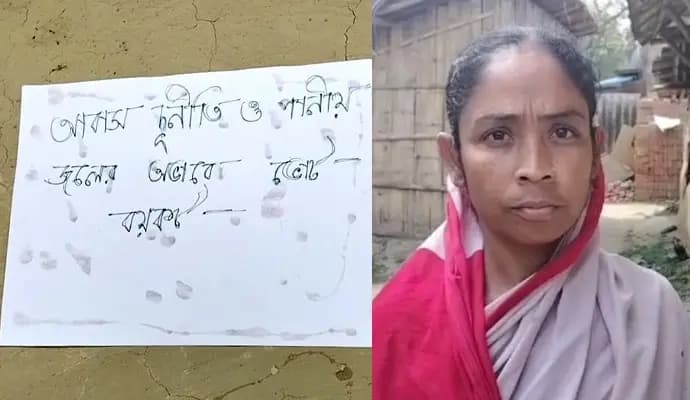 আবাস দূর্নীতি ও পানীয়
জলের অভাবে ভোট
বয়কট